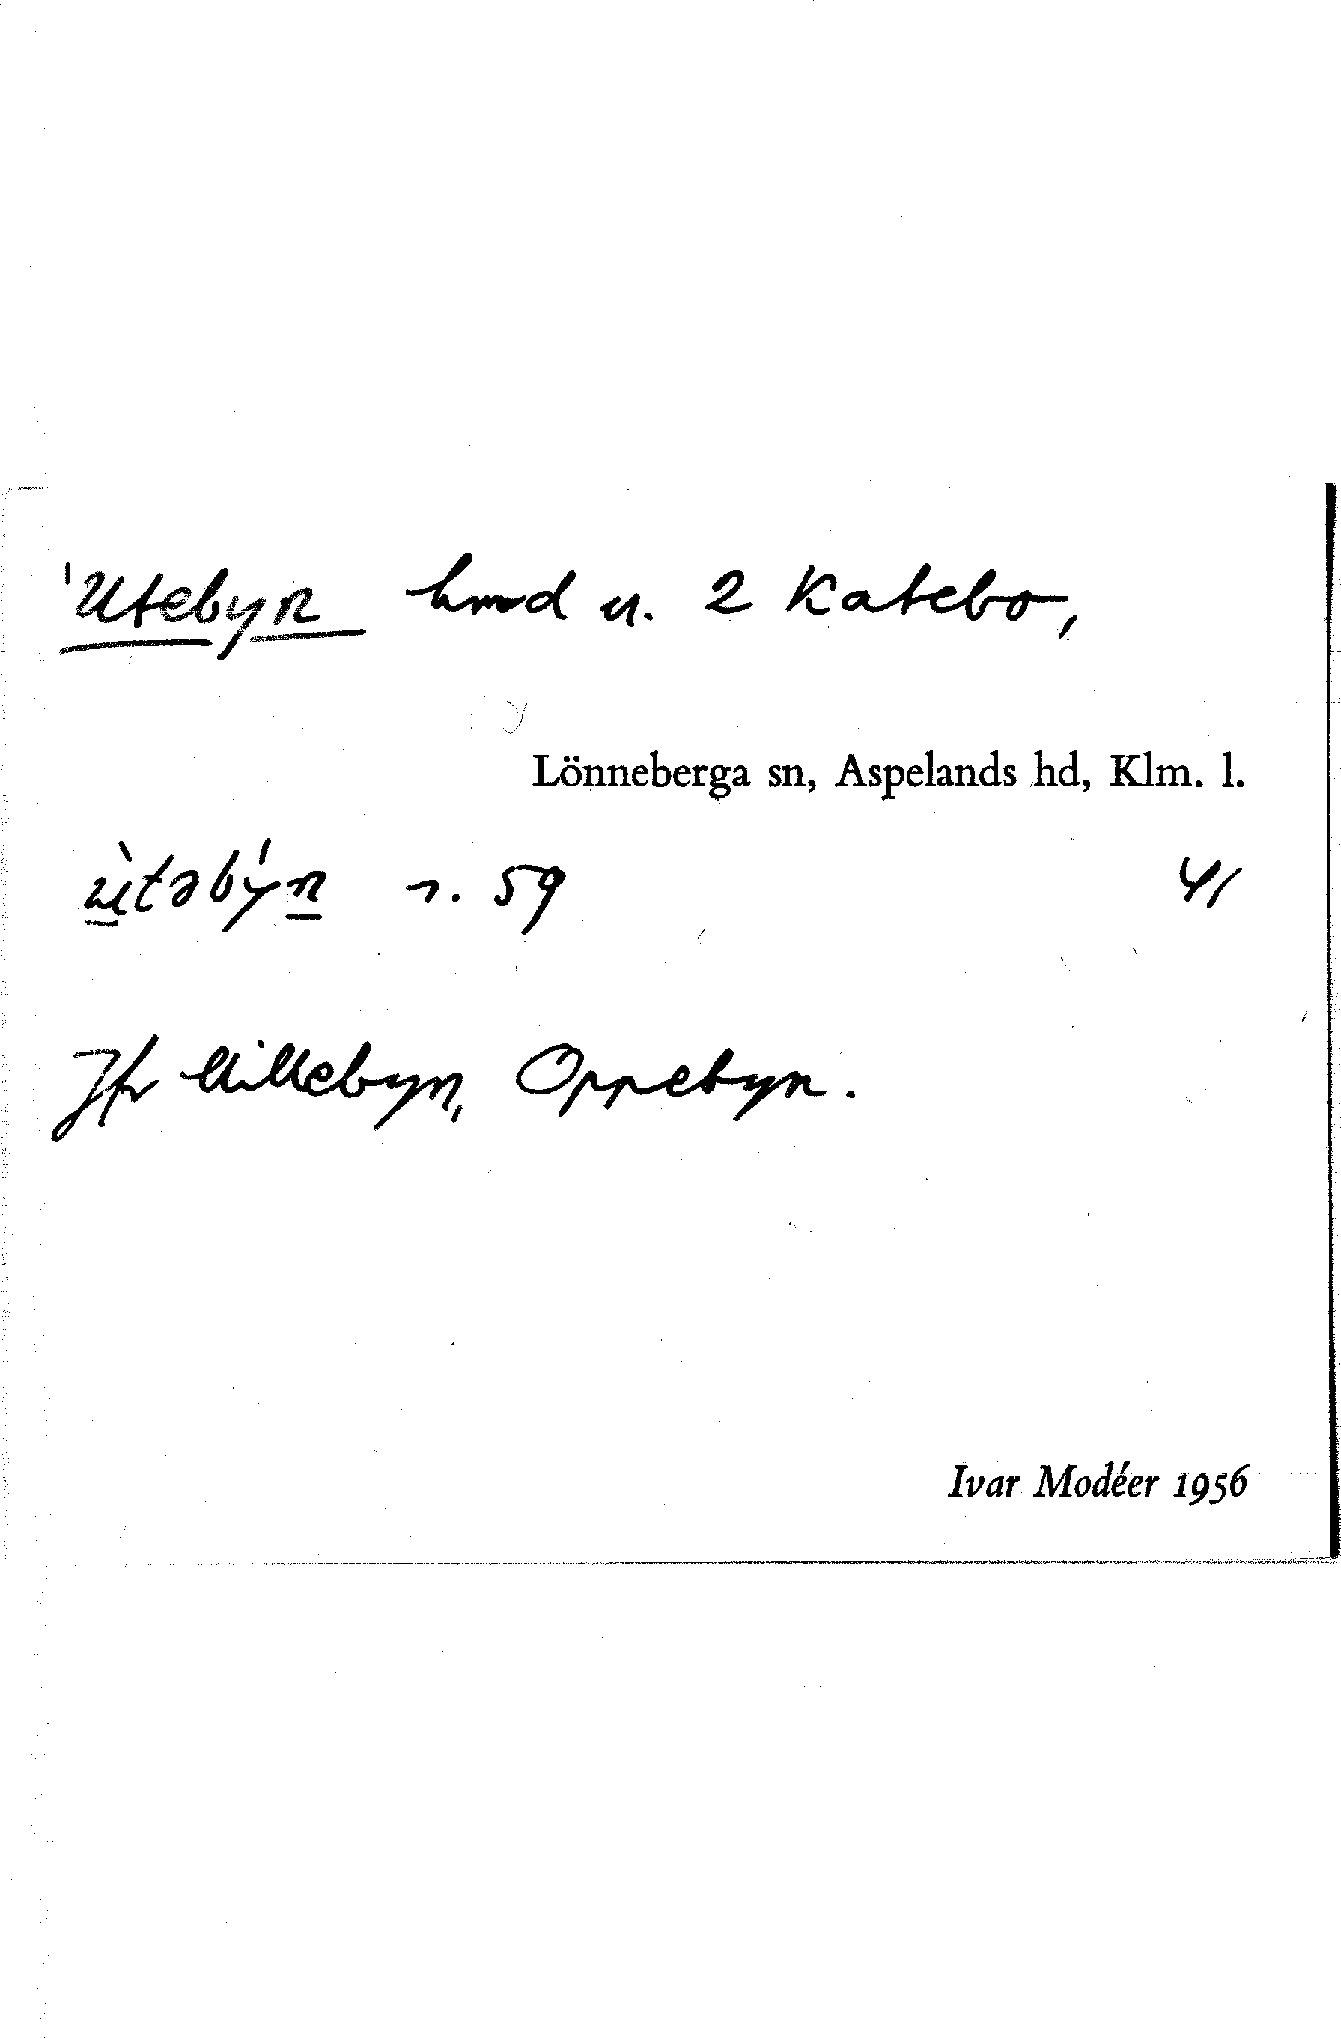 'Utebyn hmd u. 2 Katebo,
Lönneberga sn, Aspelands hd, Klm. l.
ùtəbýn s. 59 41
Jfr Millebyn, Oppebyn.
Ivar Modéer 1956